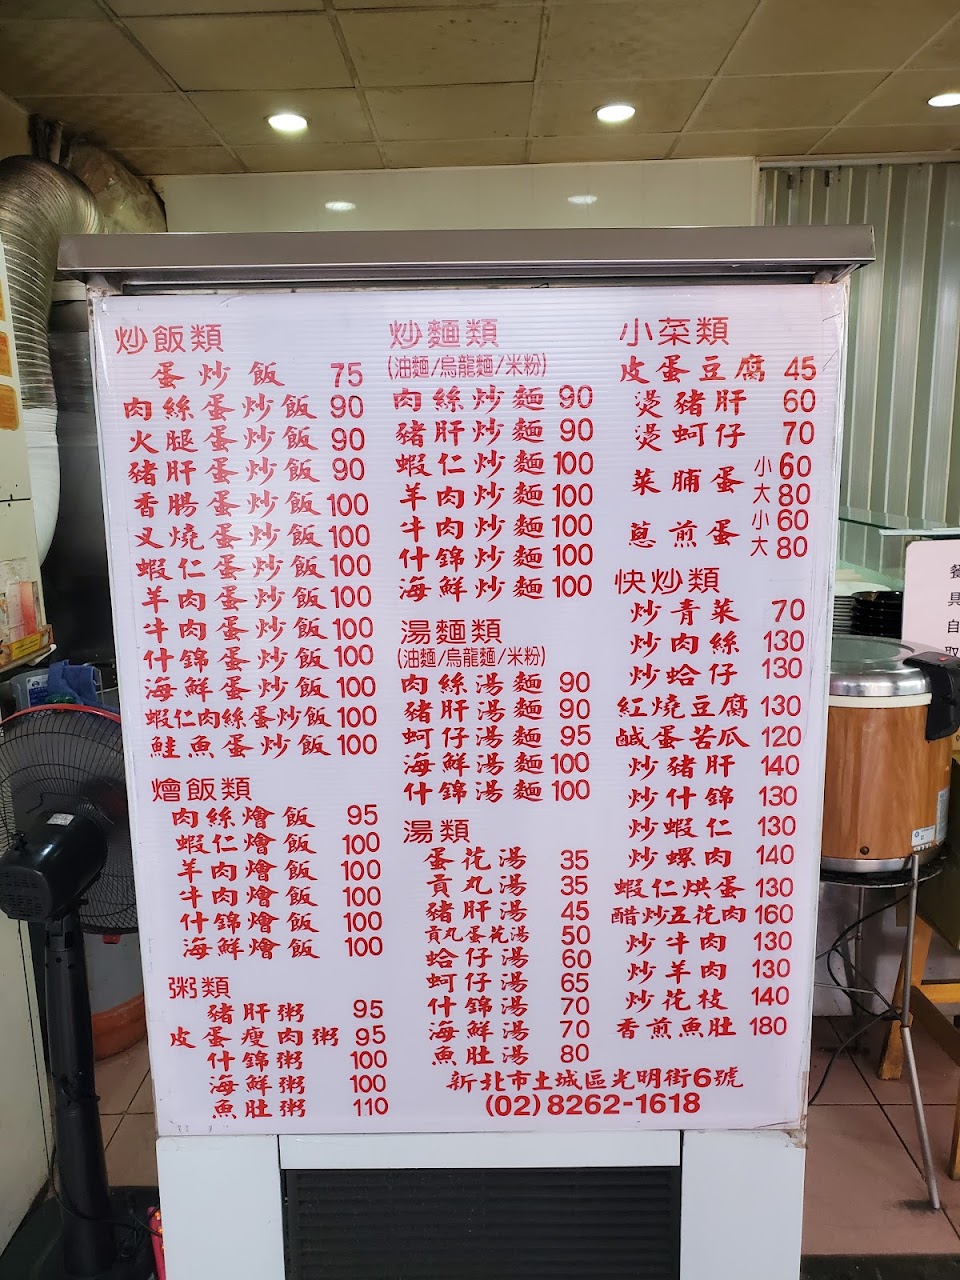 炒飯類
蛋炒飯 75
肉絲蛋炒飯 90
火腿蛋炒飯 90
豬肝蛋炒飯 90
香腸蛋炒飯 100
叉燒蛋炒飯 100
蝦仁蛋炒飯 100
羊肉蛋炒飯 100
牛肉蛋炒飯 100
什錦蛋炒飯 100
海鮮蛋炒飯 100
蝦仁肉絲蛋炒飯 100
鮭魚蛋炒飯 100
燴飯類
肉絲燴飯 95
蝦仁燴飯 100
羊肉燴飯 100
牛肉燴飯 100
什錦燴飯 100
海鮮燴飯 100
粥類
豬肝粥 95
皮蛋瘦肉粥 95
什錦粥 100
海鮮粥 100
魚肚粥 110
炒麵類
(油麵/烏龍麵/米粉)
肉絲炒麵 90
豬肝炒麵 90
蝦仁炒麵 100
羊肉炒麵 100
牛肉炒麵 100
什錦炒麵 100
海鮮炒麵 100
湯麵類
(油麵/烏龍麵/米粉)
肉絲湯麵 90
豬肝湯麵 90
蚵仔湯麵 95
海鮮湯麵 100
什錦湯麵 100
湯類
蛋花湯 35
貢丸湯 35
豬肝湯 45
貢丸蛋花湯 50
蛤仔湯 60
蚵仔湯 65
什錦湯 70
海鮮湯 70
魚肚湯 80
小菜類
皮蛋豆腐 45
燙豬肝 60
燙蚵仔 70
菜脯蛋 小60
大80
蔥煎蛋 小60
大80
快炒類
炒青菜 70
炒肉絲 130
炒蛤仔 130
紅燒豆腐 130
鹹蛋苦瓜 120
炒豬肝 140
炒什錦 130
炒蝦仁 130
炒螺肉 140
蝦仁烘蛋 130
醋炒五花肉 160
炒牛肉 130
炒羊肉 130
炒花枝 140
香煎魚肚 180
新北市土城區光明街6號
(02)8262-1618
餐
具
自
取